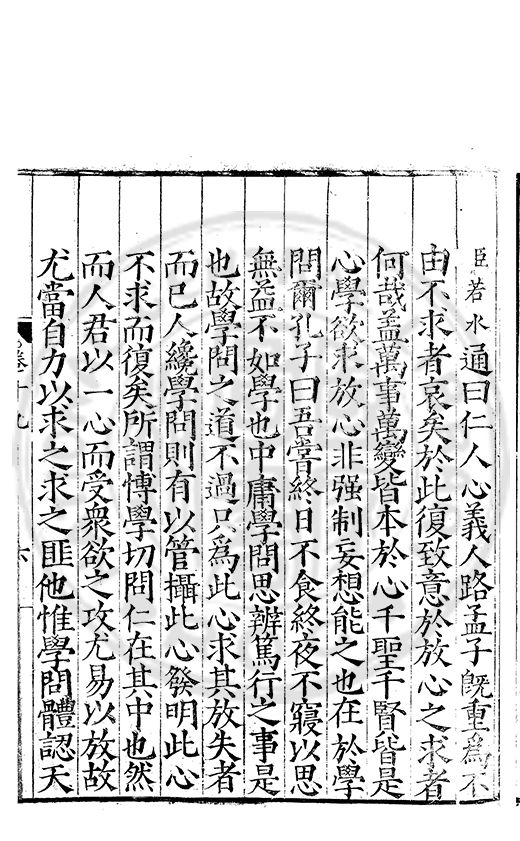 臣若水通曰仁人心義人路孟子旣重爲不
由不求者哀矣於此復致意於放心之求者
何哉盖萬事萬變皆本於心千聖千賢皆是
心學欲求放心非强制妄想能之也在於學
問爾孔子曰吾嘗終日不食終夜不寢以思
無益不如學也中庸學問思辨篤行之事是
也故學問之道不過只爲此心求其放失者
而已人纔學問則有以管攝此心發明此心
不求而復矣所謂博學切問仁在其中也然
而人君以一心而受衆欲之攻尤易以放故
尤當自力以求之求之匪他惟學問體認天
卷十九 六